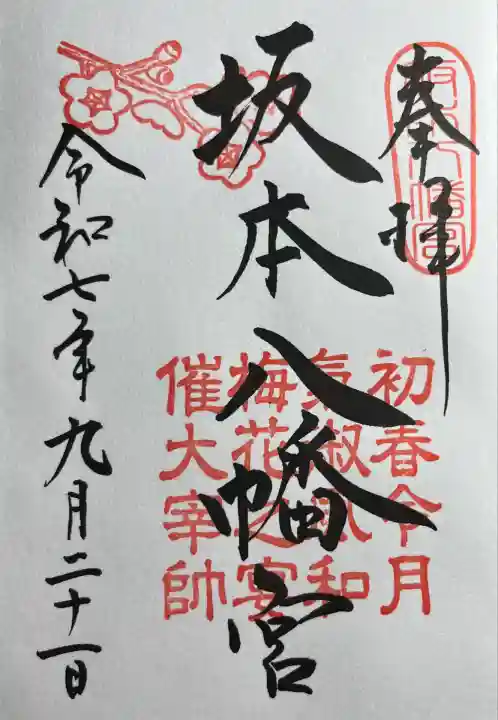 奉拝
坂本八幡宮
坂本八幡宮
初春令月
気淑風和
梅花之宴
催大宰帥
令和七年九月二十一日